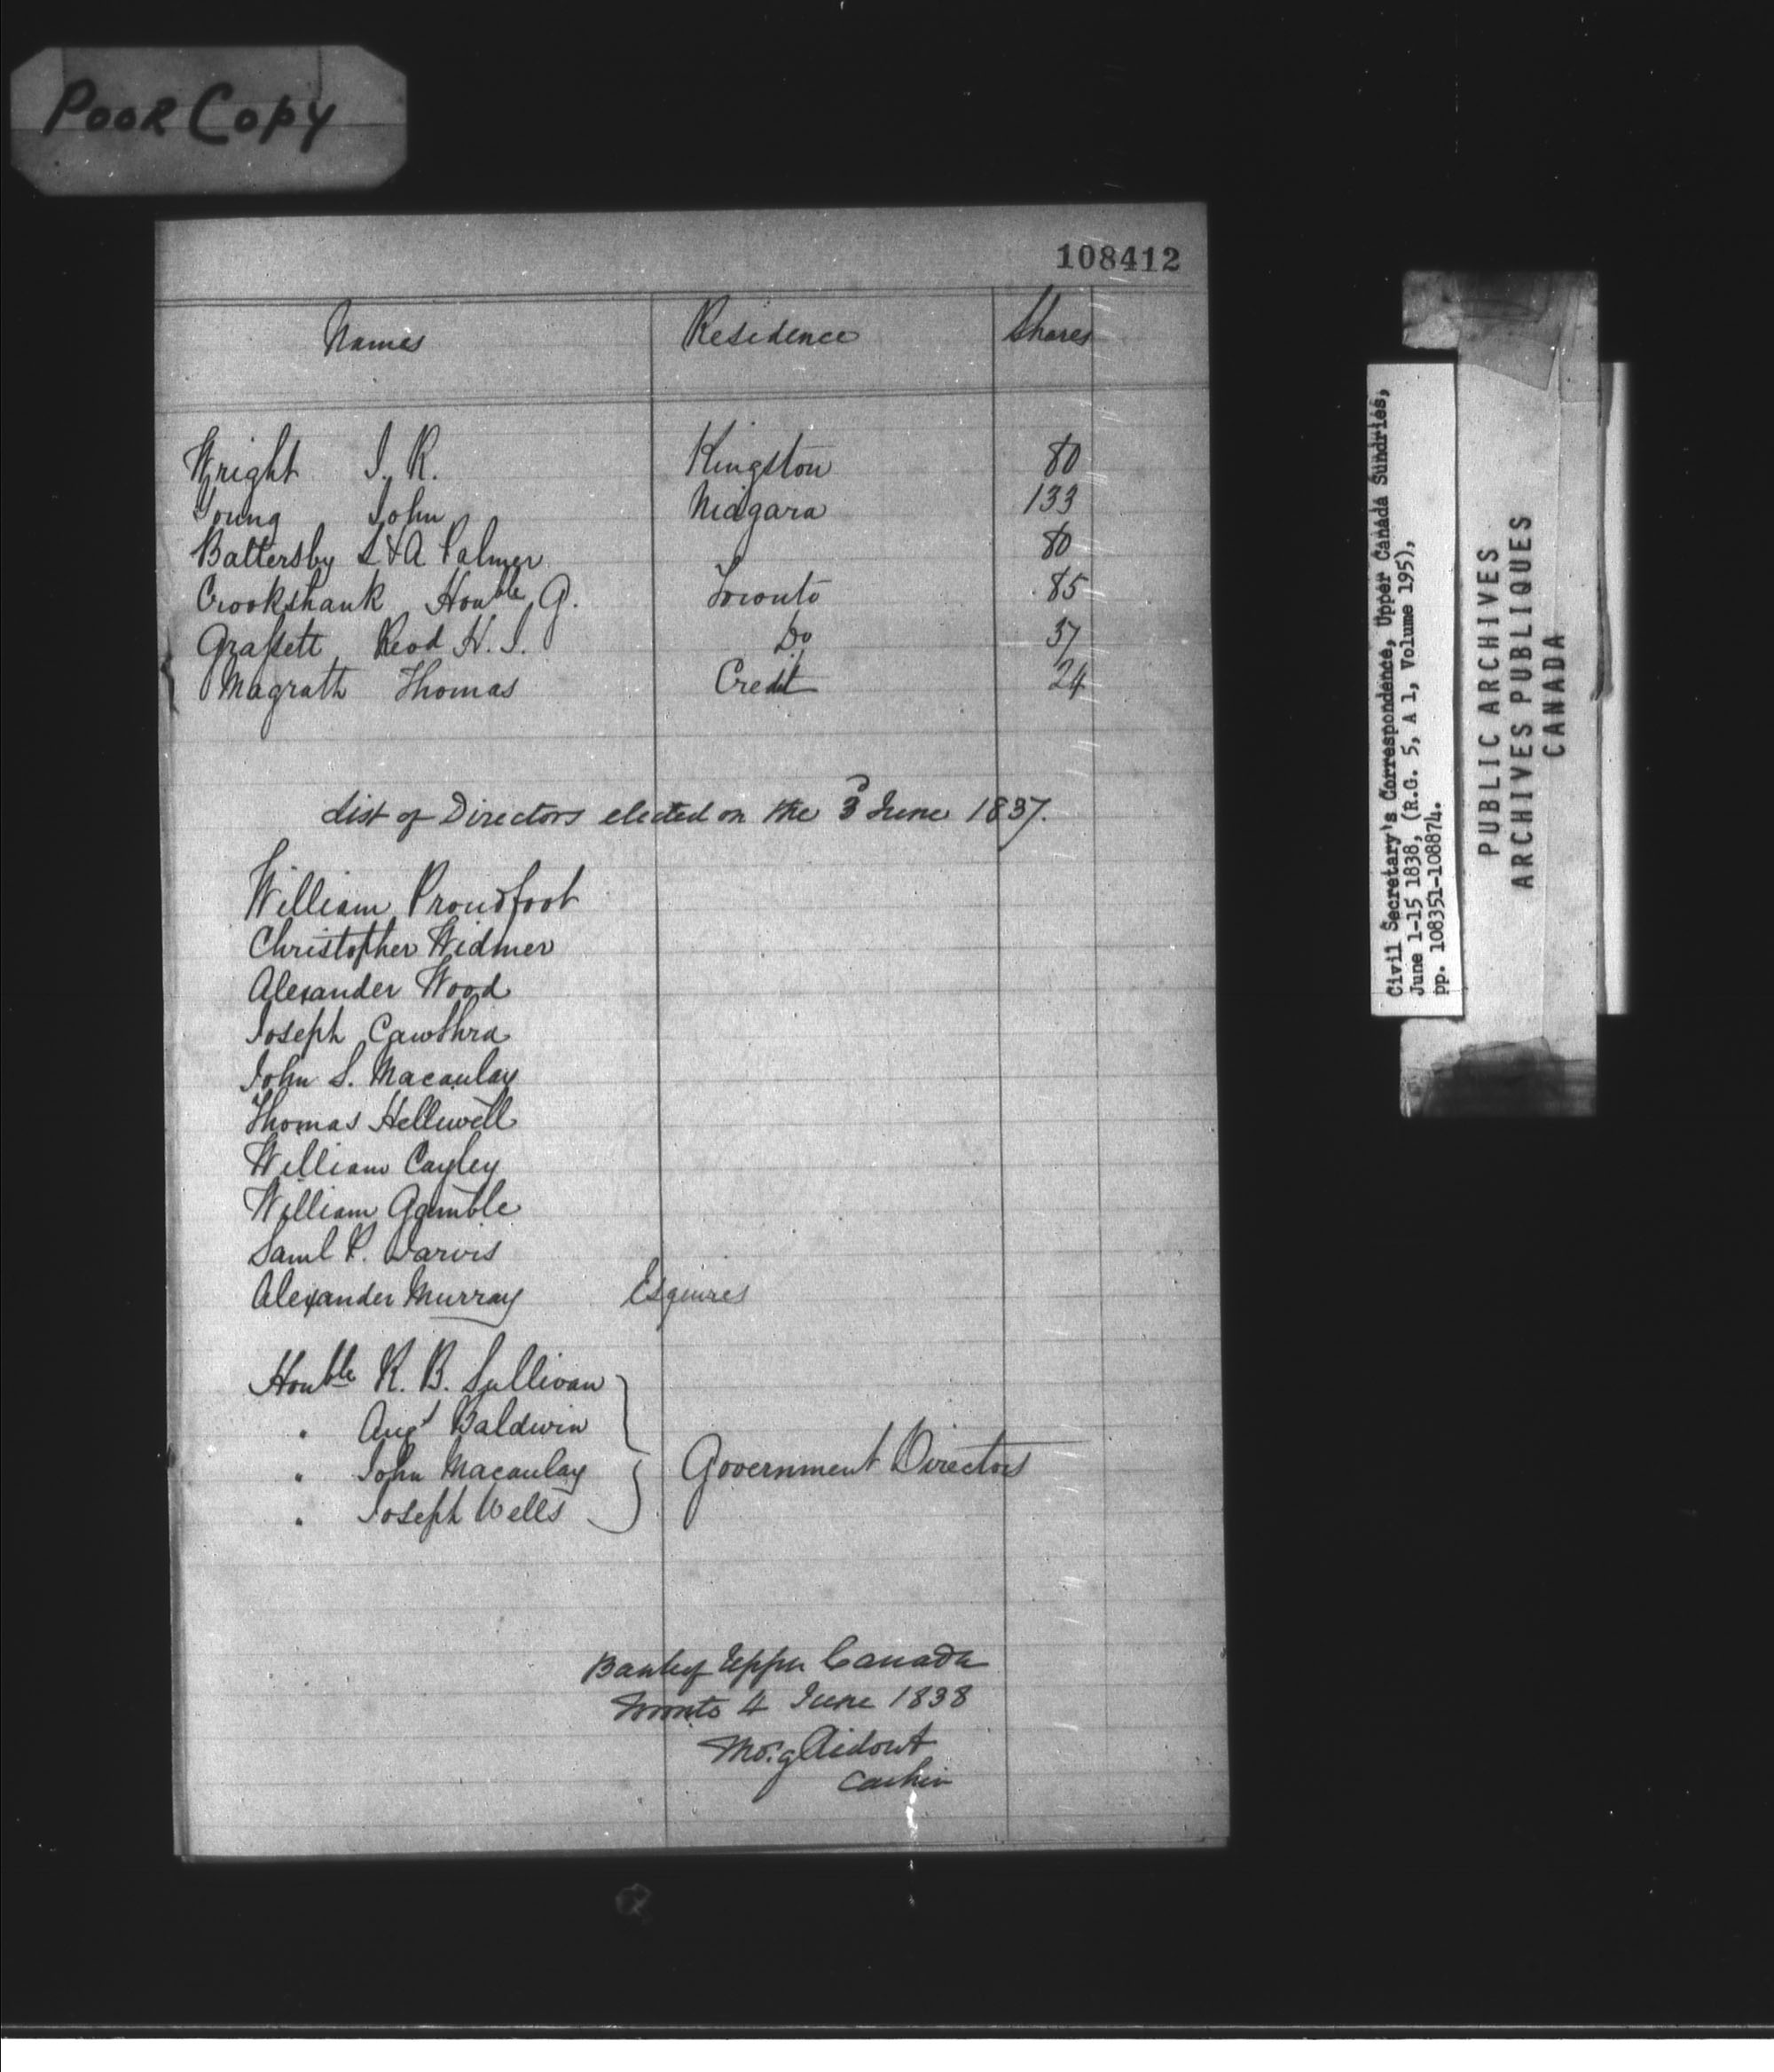 Poor Copy
108412
Names Residence Shares
Wright J. R. Kingston 80
Young John Niagara 133
Battersby L & A Palmer 80
Crookshank Honble G. Toronto 85
Grassett Revd H. J. Do 37
Magrath Thomas Credit 24
List of Directors elected on the 3 June 1837.
William Proudfoot
Christopher Widmer
Alexander Wood
Joseph Cawthra
John S. Macaulay
Thomas Helliwell
William Cayley
William Gamble
Saml P. Jarvis
Alexander Murray Esquires
Honble R. B. Sullivan
" Augt Baldwin
" John Macaulay Government Directors
" Joseph Wells
Bank of Upper Canada
Toronto 4 June 1838
Tho. G Ridout
Cashier
Civil Secretary's Correspondence, Upper Canada Sundries,
June 1-15 1838, (R.G. 5, A 1, Volume 195),
pp. 108351-108874.
PUBLIC ARCHIVES
ARCHIVES PUBLIQUES
CANADA